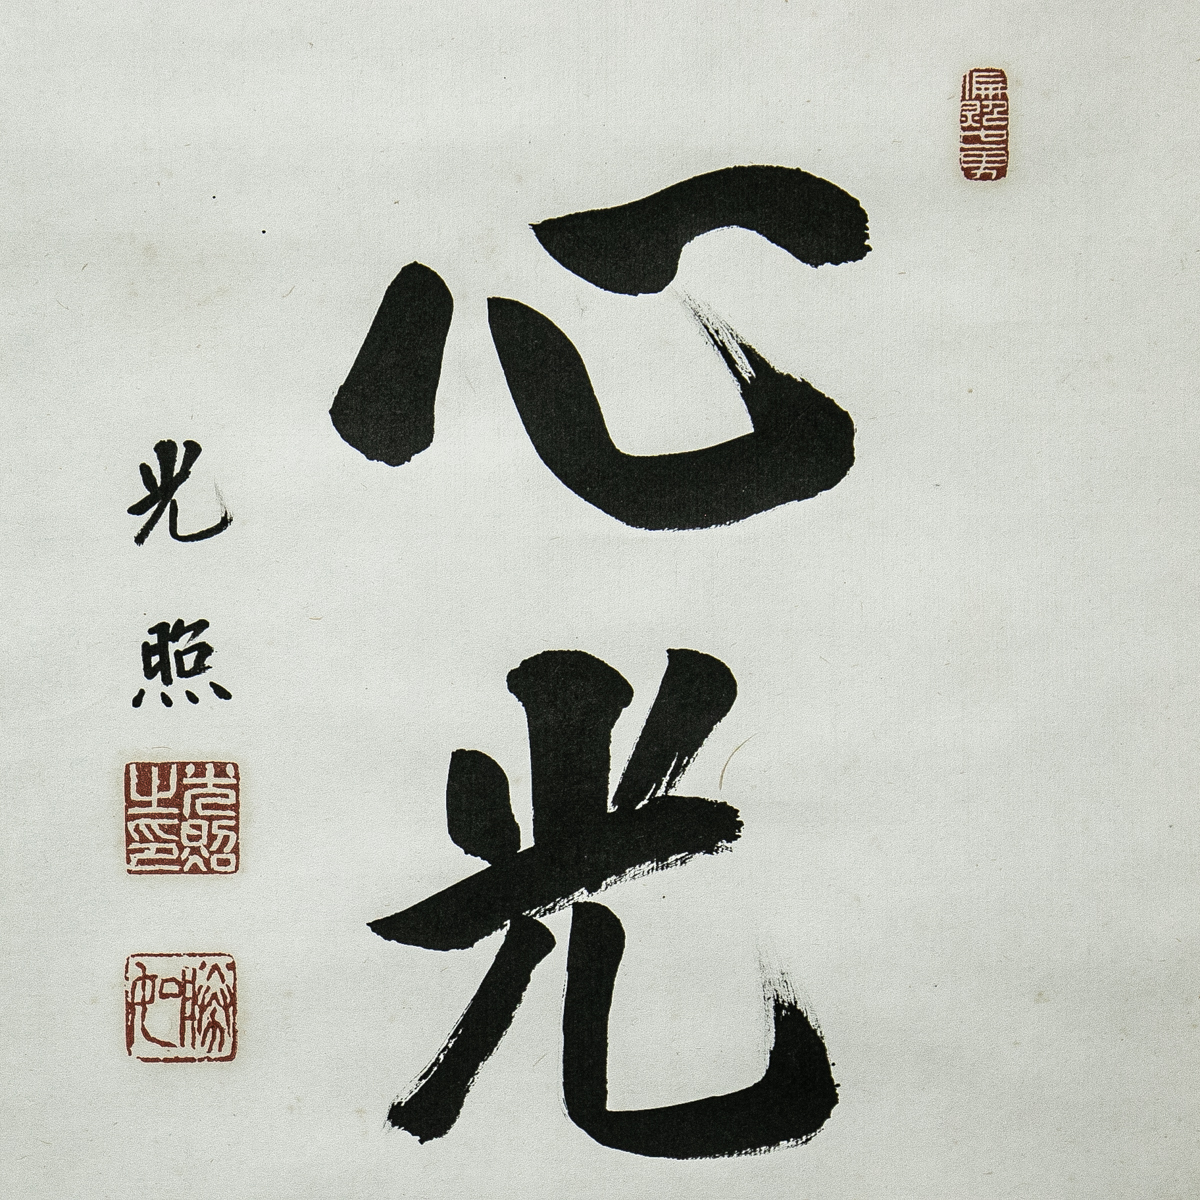 心光
光照
光照之印
勝如